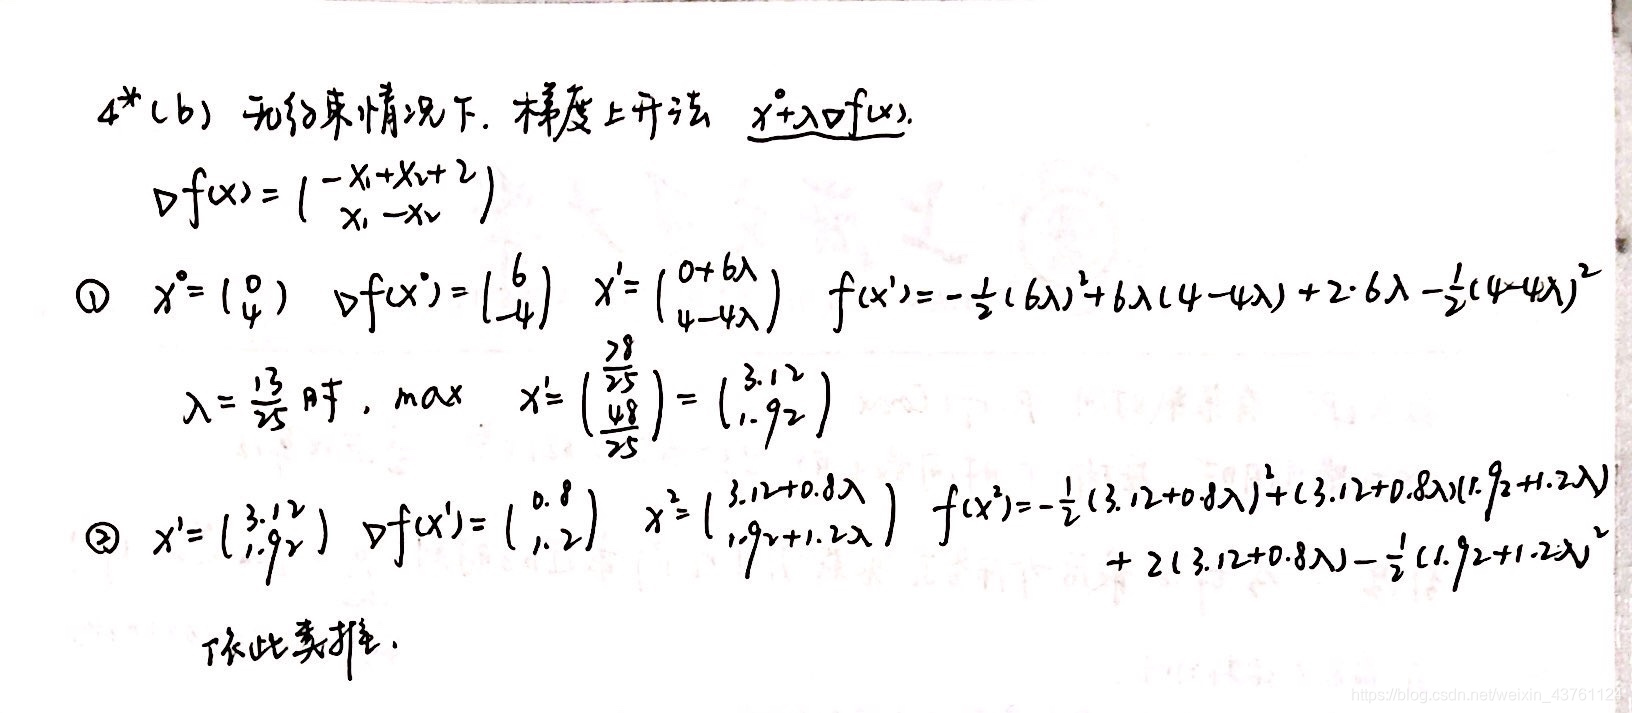 4*(b) 无约束情况下. 梯度上升法 x⁰+λ∇f(x).
∇f(x) = (-x₁+x₂+2
x₁-x₂)
① x⁰=(0 4) ∇f(x⁰)=(6 -4) x¹=(0+6λ 4-4λ) f(x¹)=-½(6λ)²+6λ(4-4λ)+2·6λ-½(4-4λ)²
λ=13/25 时, max x¹=(78/25 48/25)=(3.12 1.92)
② x¹=(3.12 1.92) ∇f(x¹)=(0.8 1.2) x²=(3.12+0.8λ 1.92+1.2λ) f(x²)=-½(3.12+0.8λ)²+(3.12+0.8λ)(1.92+1.2λ)
+2(3.12+0.8λ)-½(1.92+1.2λ)²
依此类推.